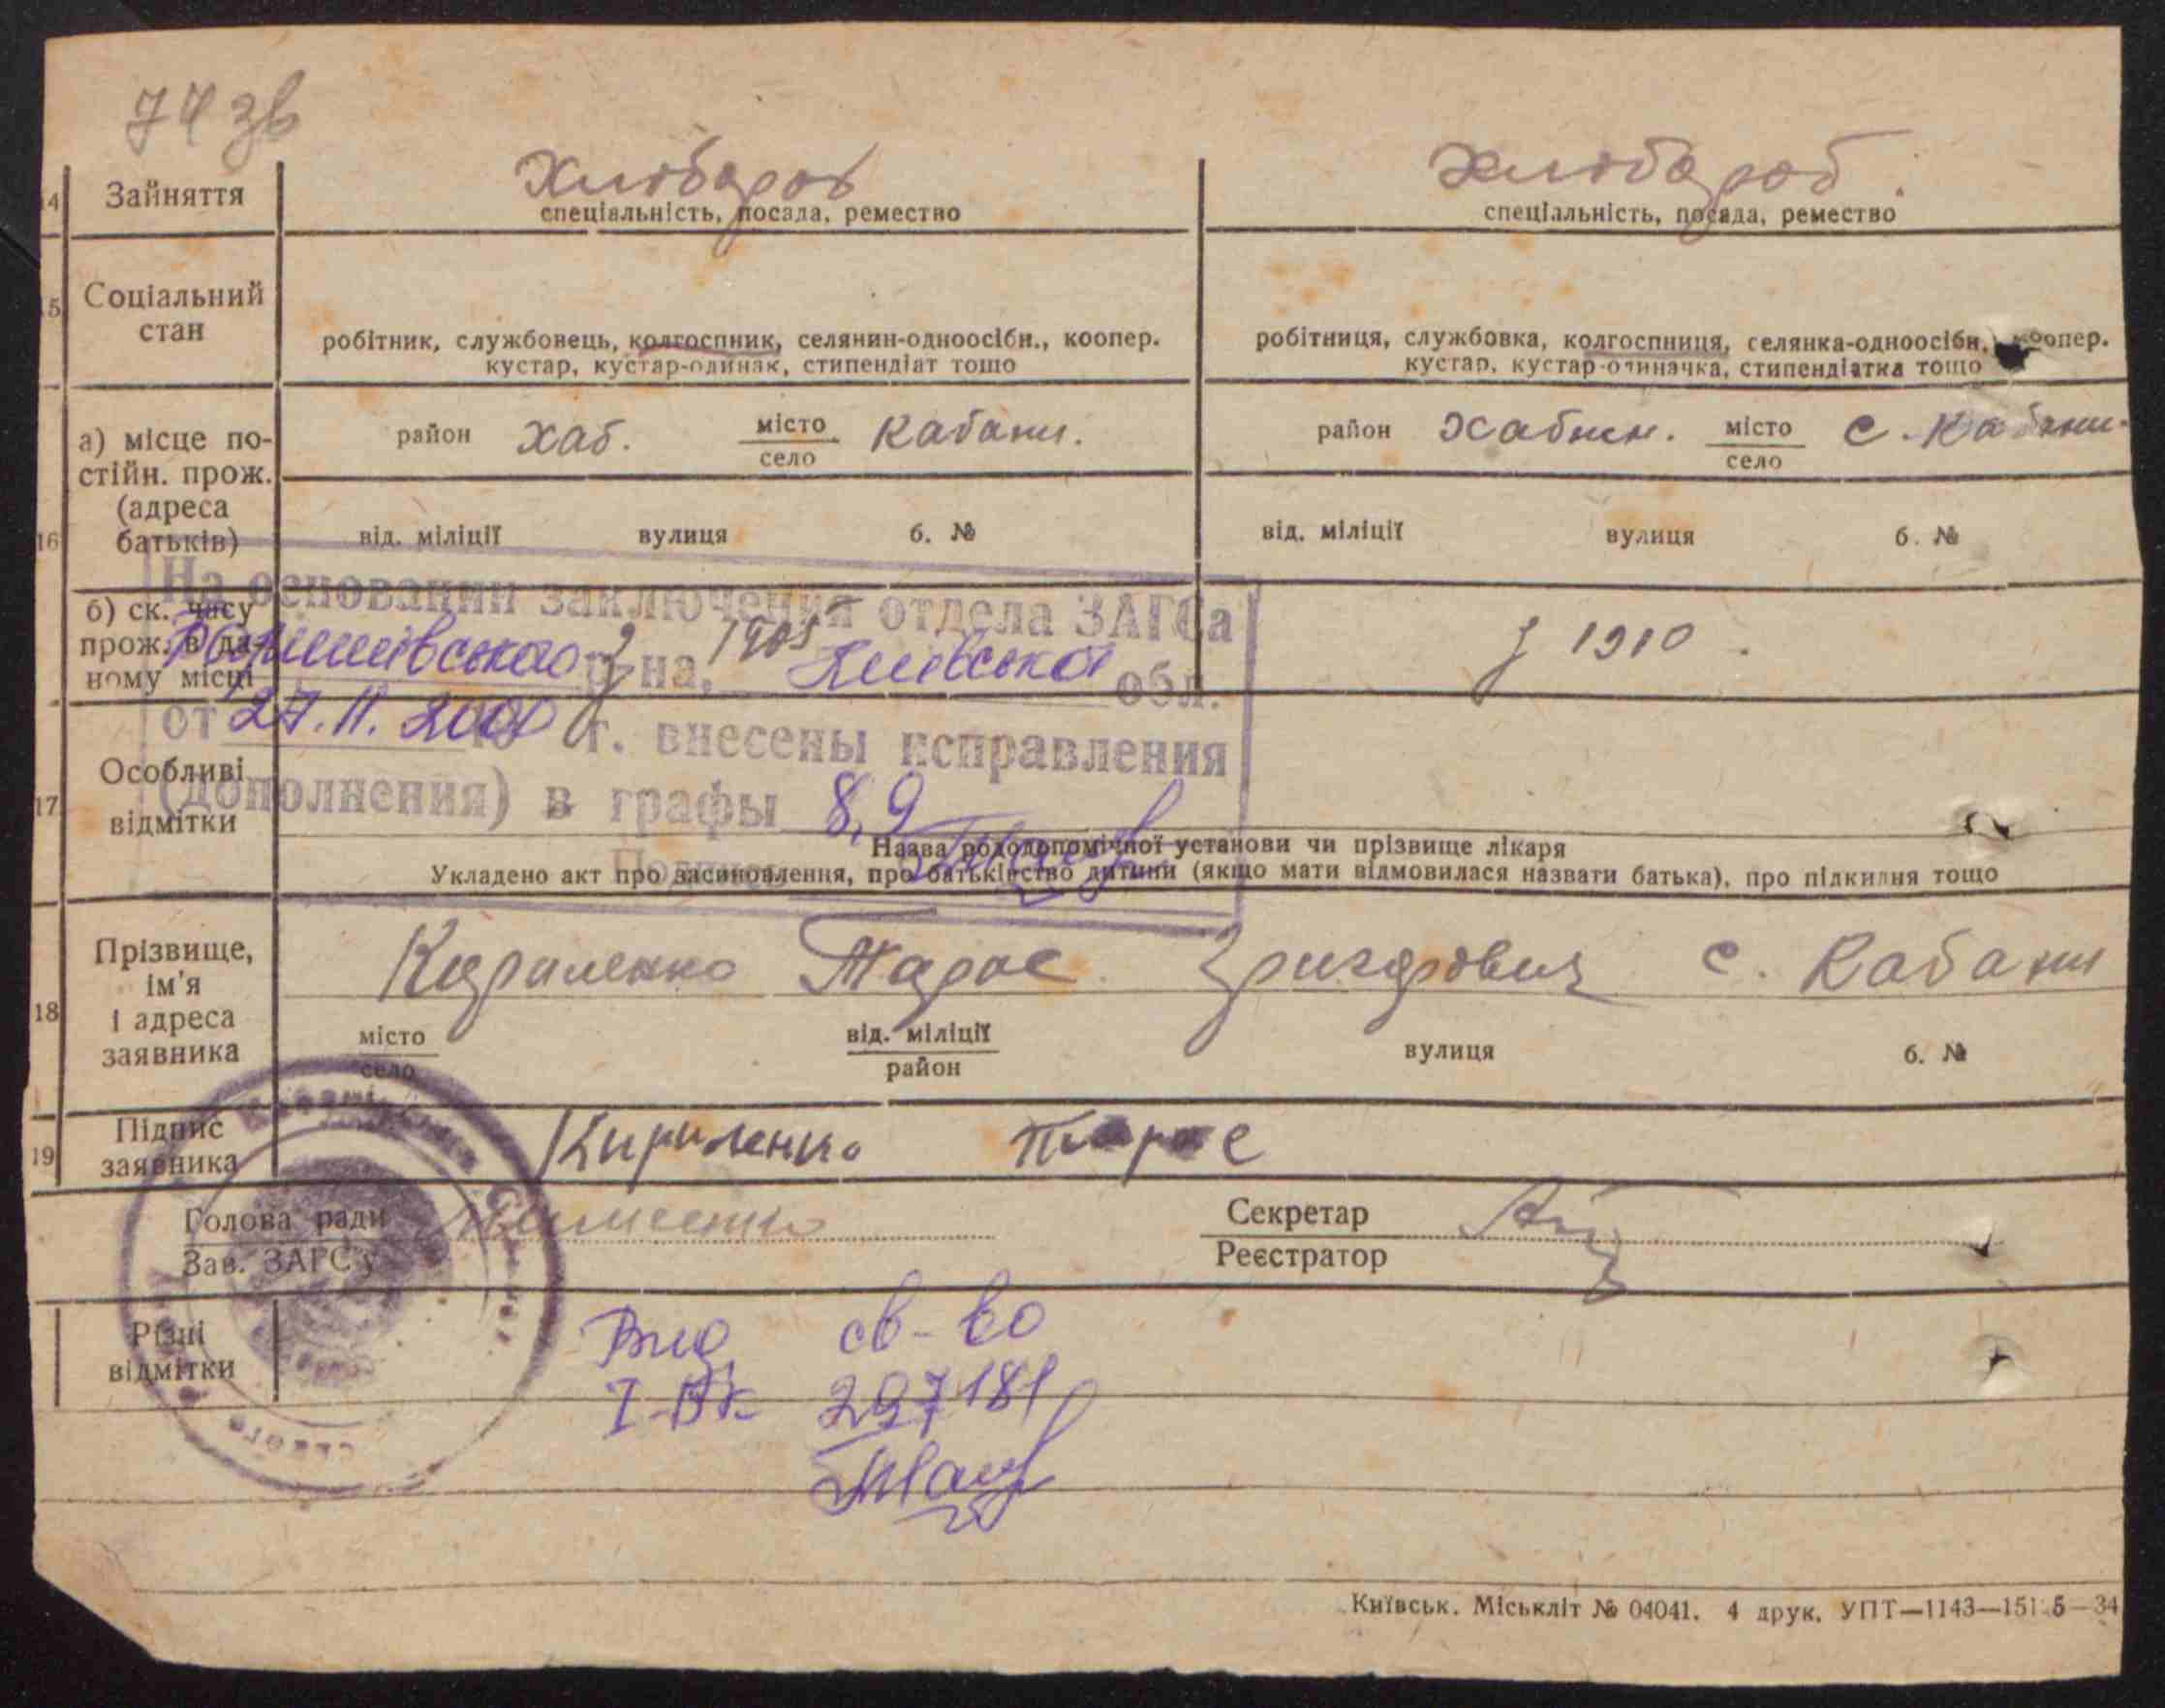 74 зв
14 Зайняття
Хлібороб
спеціальність, посада, ремество
Хлібороб
спеціальність, посада, ремество
15 Соціальний стан
робітник, службовець, колгоспник, селянин-одноосібн., коопер.
кустар, кустар-одинак, стипендіат тощо
робітниця, службовка, колгоспниця, селянка-одноосібн., коопер.
кустар, кустар-одиначка, стипендіатка тощо
16 а) місце по-
стійн. прож.
(адреса
батьків)
район Хаб. місто Кабани.
село
район Хабнен. місто с. Кабани.
село
від. міліції вулиця б. №
від. міліції вулиця б. №
б) ск. часу
прож. в да-
ному місці
1905
з 1910.
На основании заключения отдела ЗАГСа
р-на, Київської обл.
от 27.11.2000 г. внесены исправления
(дополнения) в графы 8,9
Подпись
17 Особливі
відмітки
Назва рододопомічної установи чи прізвище лікаря
Укладено акт про засиновлення, про батьківство дитини (якщо мати відмовилася назвати батька), про підкидня тощо
18 Прізвище,
ім'я
і адреса
заявника
Кириленко Тарас Григорович с. Кабани
місто від. міліції вулиця б. №
село район
19 Підпис
заявника
Кириленко Тарас
Голова ради
Зав. ЗАГС'у
Секретар
Реєстратор
Різні
відмітки
Вид св-во
І-БК 297181
Київськ. Міськліт № 04041. 4 друк. УПТ—1143—151 5—34